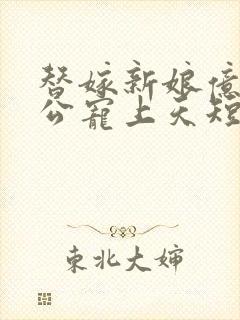 替嫁新娘億
公寵上天短
東北大婶